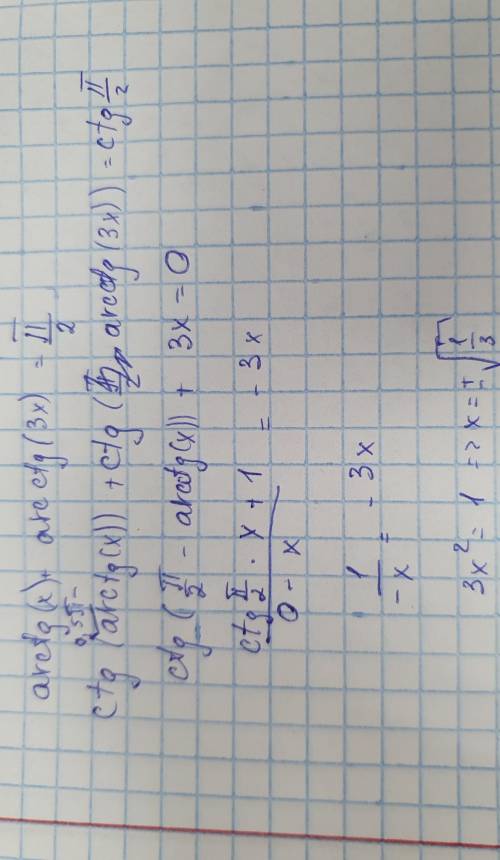 arctg(x) + arcctg(3x) = π/2
0,5π -
ctg(arctg(x)) + ctg(π/2 arcctg(3x)) = ctg π/2
ctg(π/2 - arcctg(x)) + 3x = 0
(ctg π/2 · x + 1)/(0 - x) = - 3x
1/(-x) = - 3x
3x² = 1 => x = ±√(1/3)